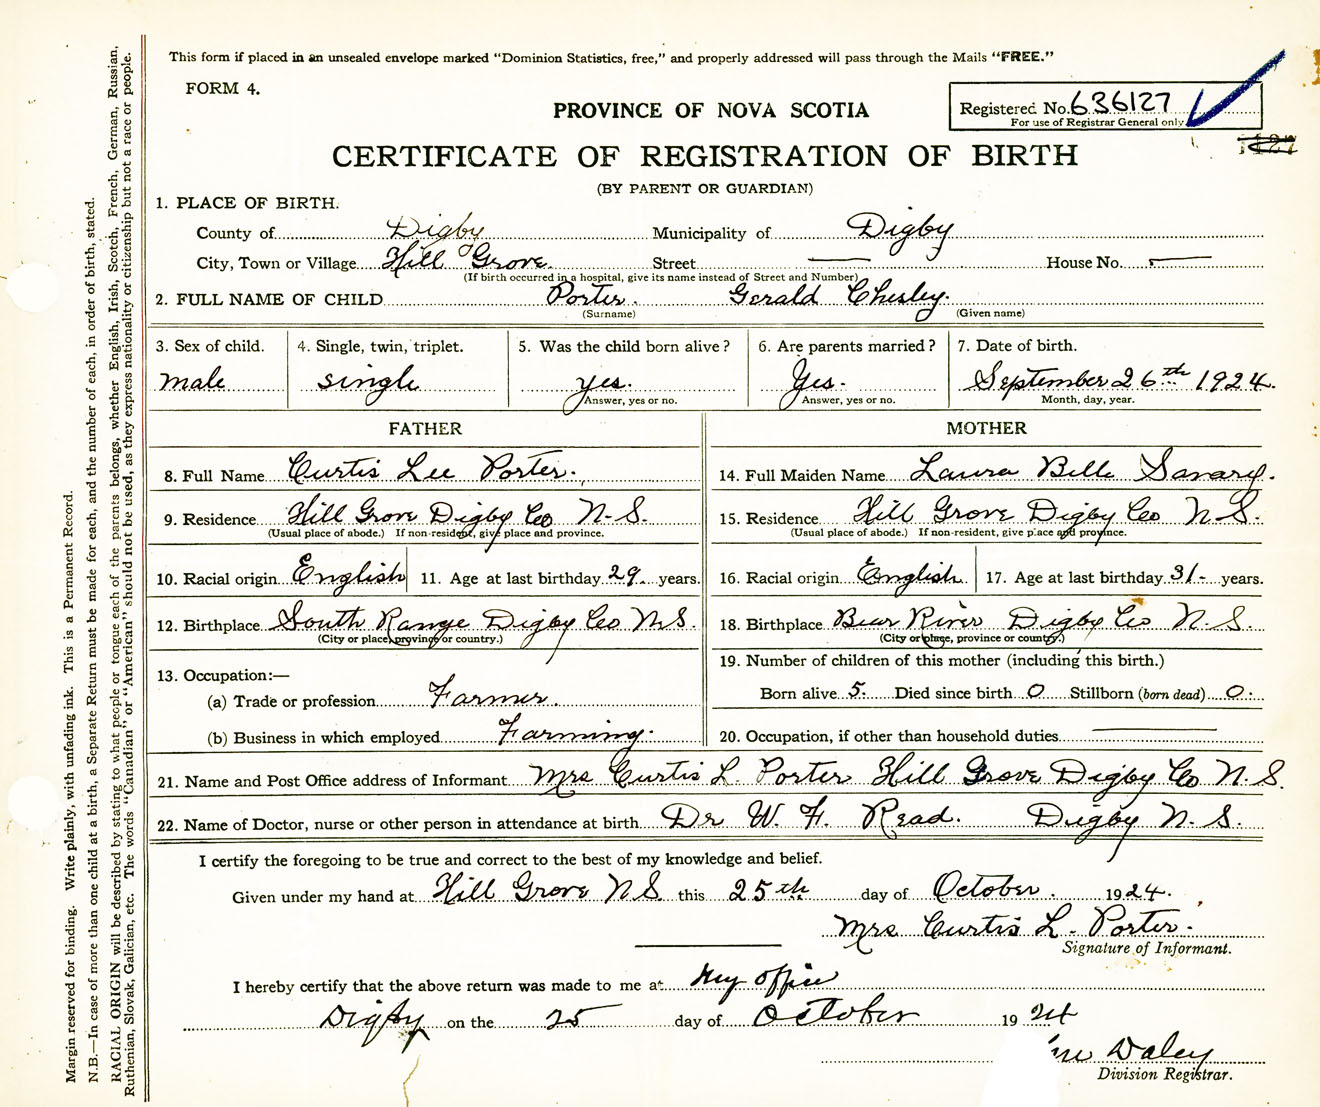 This form if placed in an unsealed envelope marked "Dominion Statistics, free," and properly addressed will pass through the Mails "FREE."
FORM 4.
Registered No. 636127
For use of Registrar General only
PROVINCE OF NOVA SCOTIA
CERTIFICATE OF REGISTRATION OF BIRTH
(BY PARENT OR GUARDIAN)
1. PLACE OF BIRTH.
County of Digby Municipality of Digby
City, Town or Village Hill Grove Street — House No. —
(If birth occurred in a hospital, give its name instead of Street and Number)
2. FULL NAME OF CHILD Porter. Gerald Chesley.
(Surname) (Given name)
3. Sex of child. 4. Single, twin, triplet. 5. Was the child born alive? 6. Are parents married? 7. Date of birth.
male single yes. Yes. September 26th 1924.
Answer, yes or no. Answer, yes or no. Month, day, year.
FATHER MOTHER
8. Full Name Curtis Lee Porter. 14. Full Maiden Name Laura Belle Savary.
9. Residence Hill Grove Digby Co N.S. 15. Residence Hill Grove Digby Co N.S.
(Usual place of abode.) If non-resident, give place and province. (Usual place of abode.) If non-resident, give place and province.
10. Racial origin English 11. Age at last birthday 29. years. 16. Racial origin English 17. Age at last birthday 31- years.
12. Birthplace South Range Digby Co N.S. 18. Birthplace Bear River Digby Co N.S.
(City or place, province or country.) (City or place, province or country.)
13. Occupation:— 19. Number of children of this mother (including this birth.)
(a) Trade or profession Farmer. Born alive 5. Died since birth 0 Stillborn (born dead) 0.
(b) Business in which employed Farming. 20. Occupation, if other than household duties —
21. Name and Post Office address of Informant Mrs Curtis L. Porter Hill Grove Digby Co N.S.
22. Name of Doctor, nurse or other person in attendance at birth Dr W. F. Read. Digby N.S.
I certify the foregoing to be true and correct to the best of my knowledge and belief.
Given under my hand at Hill Grove N.S. this 25th day of October. 1924.
Mrs Curtis L. Porter.
Signature of Informant.
I hereby certify that the above return was made to me at my office
Digby on the 25 day of October 1924
Daley
Division Registrar.
Margin reserved for binding. Write plainly, with unfading ink. This is a Permanent Record.
N.B.—In case of more than one child at a birth, a Separate Return must be made for each, and the number of each, in order of birth, stated.
RACIAL ORIGIN will be described by stating to what people or tongue each of the parents belongs, whether English, Irish, Scotch, French, German, Russian,
Ruthenian, Slovak, Galician, etc. The words "Canadian" or "American" should not be used, as they express nationality or citizenship but not a race or people.